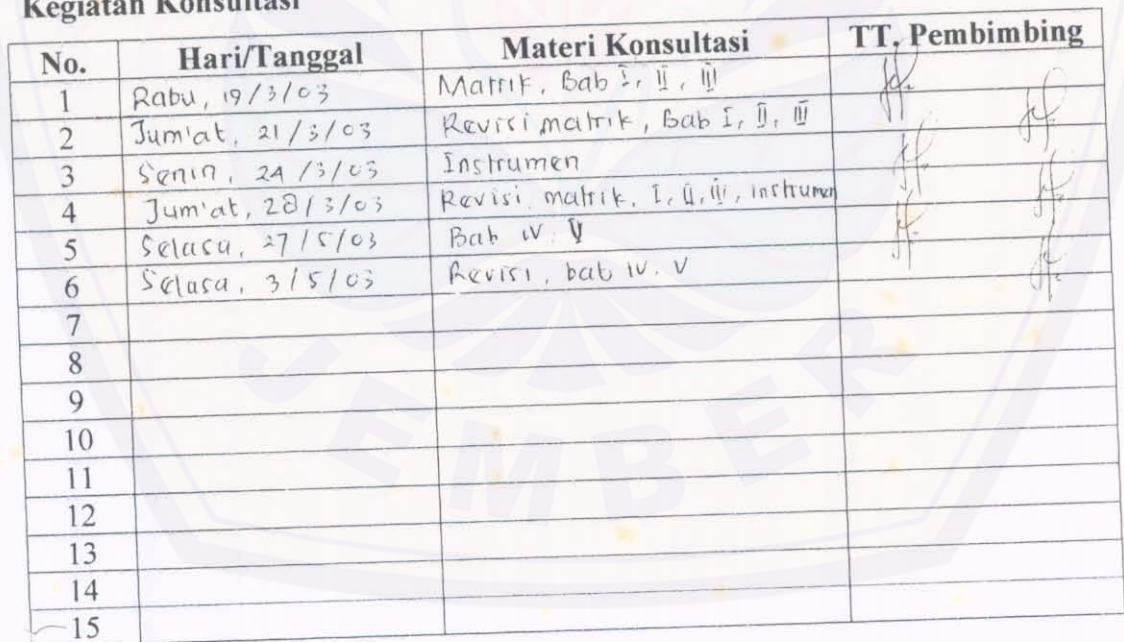 Kegiatan Konsultasi
No. Hari/Tanggal Materi Konsultasi TT. Pembimbing
1 Rabu, 19/3/03 Matrik, Bab I, II, III
2 Jum'at, 21/3/03 Revisi matrik, Bab I, II, III
3 Senin, 24/3/03 Instrumen
4 Jum'at, 28/3/03 Revisi matrik, I, II, III, instrumen
5 Selasa, 27/5/03 Bab IV. V
6 Selasa, 3/5/03 Revisi, bab IV. V
7
8
9
10
11
12
13
14
15
JEMBER